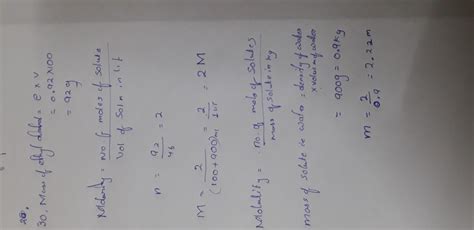 20.
30. Mass of ethyl alcohol = e × v
= 0.92×100
= 92g
Molarity = no. of moles of solute
Vol of Soln in lit
n = 92 = 2
46
M = 2 = 2 = 2M
(100+900)ml 1lit
Molality = no. of mole of solutes
mass of solute in kg
mass of solute i.e water = density of water
× volume of water
= 900g = 0.9kg
m = 2 = 2.22m
0.9